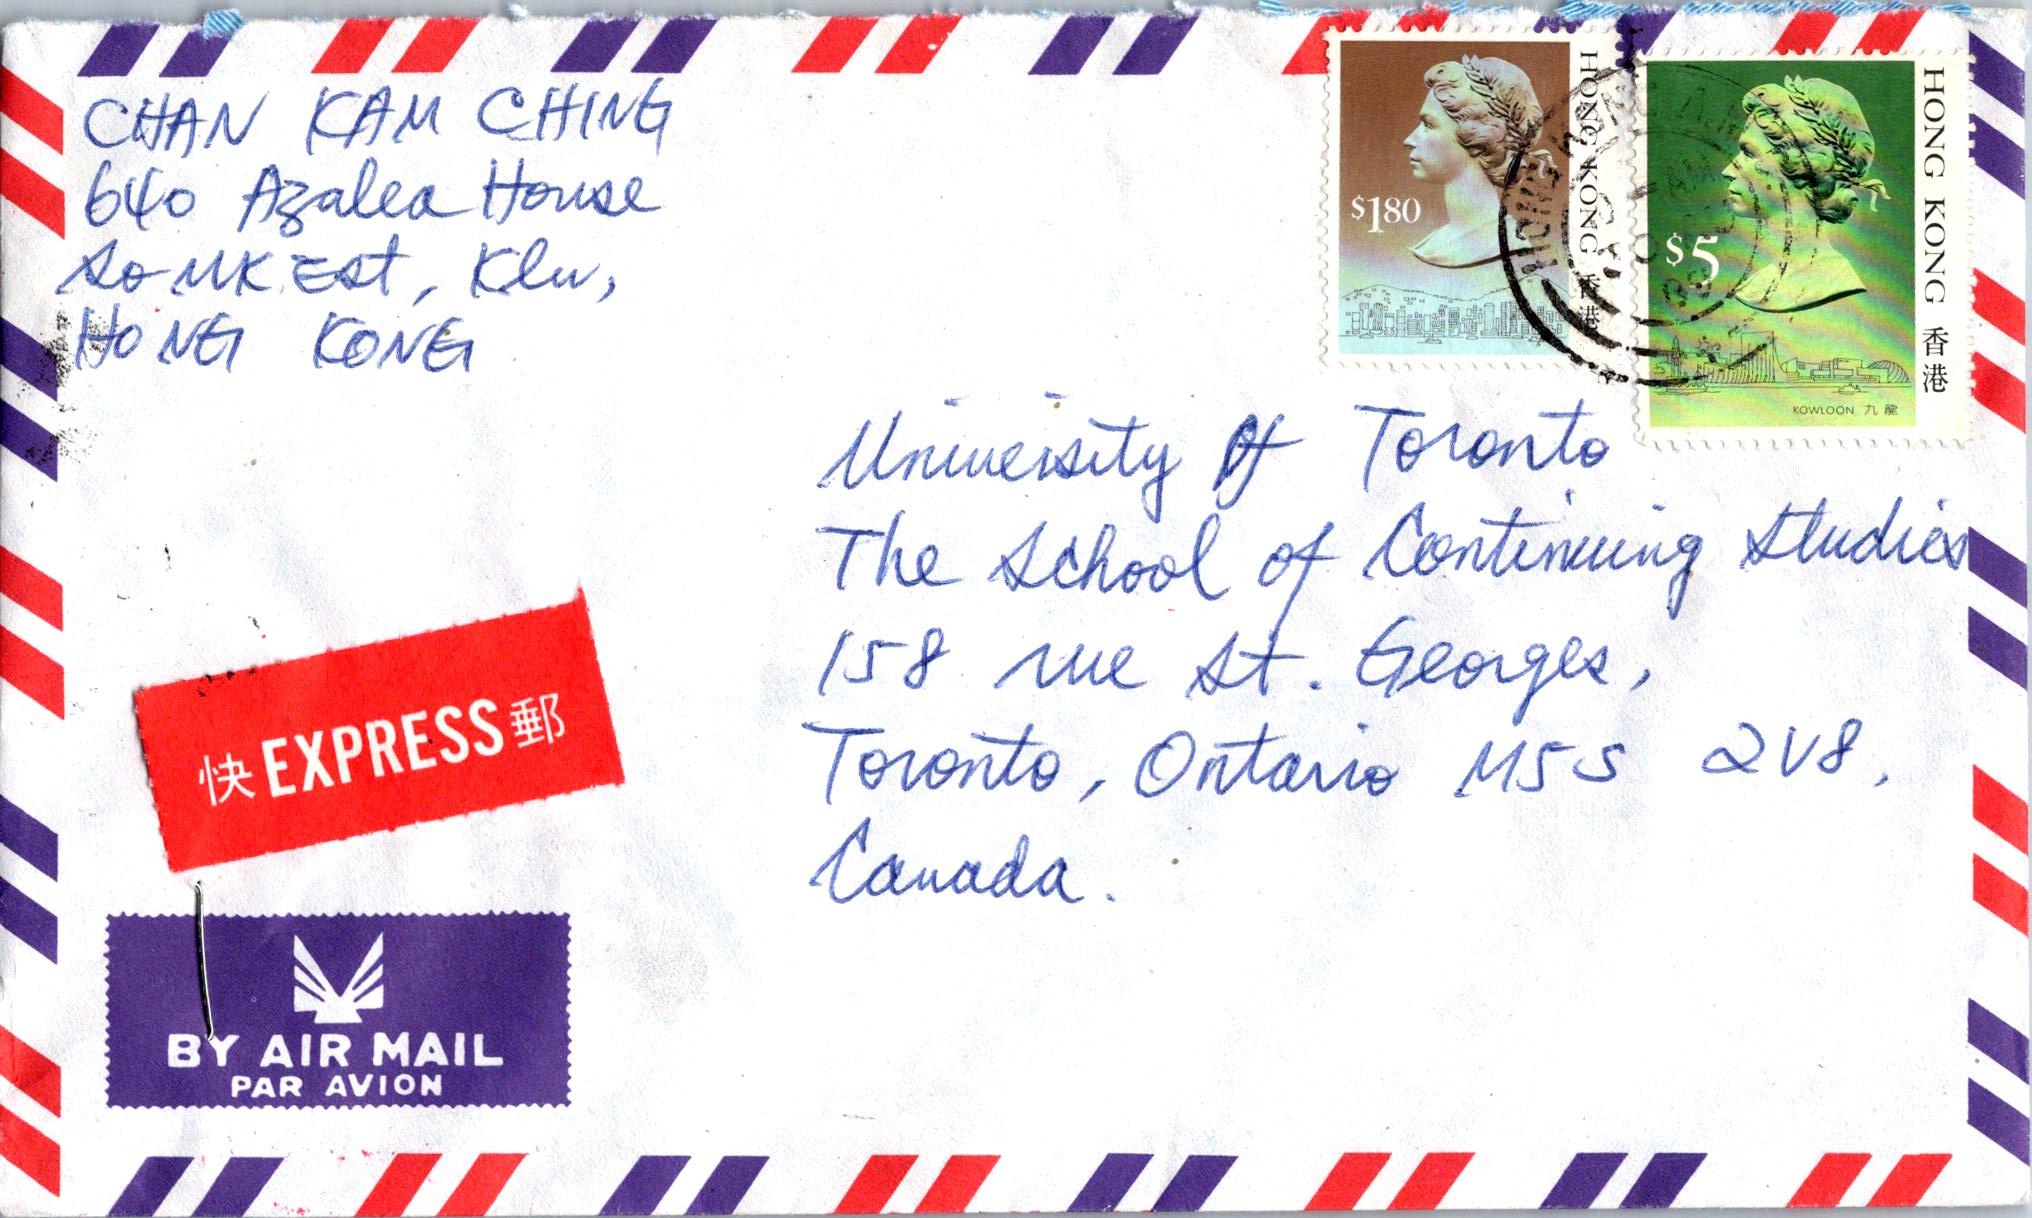 CHAN KAM CHING
640 Azalea House
So UK Est, Kln,
HONG KONG
$180
HONG KONG 香港
$5
HONG KONG 香港
KOWLOON 九龍
HONG KONG
University Of Toronto
The School of Continuing Studies
158 rue St. Georges,
Toronto, Ontario M5S 2V8,
Canada.
快 EXPRESS 郵
BY AIR MAIL
PAR AVION